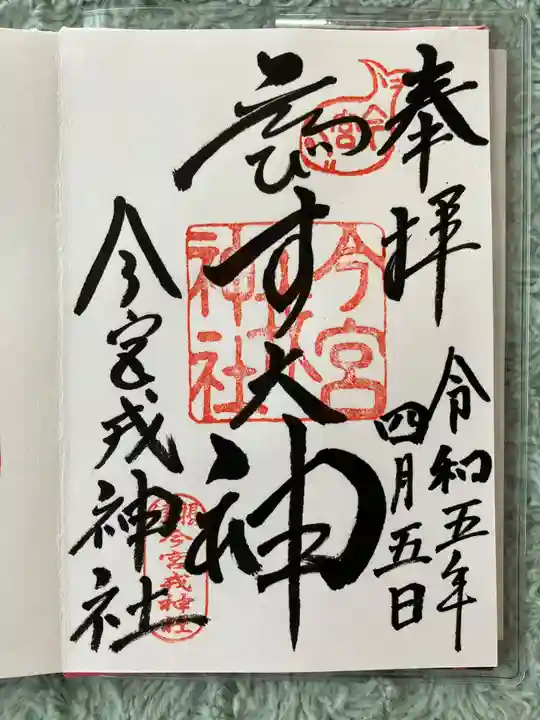 奉拝
令和五年
四月五日
ゑびす大神
今宮戎神社
今宮戎神社
今宮
今宮戎神社